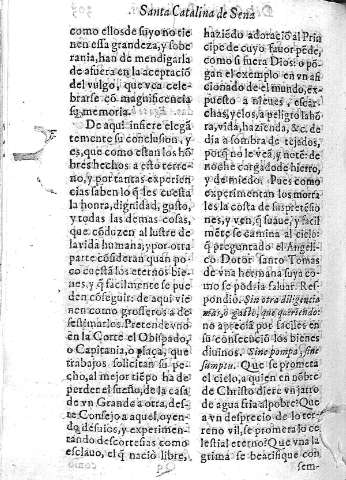 Santa Catalina de Sena
como ellos de suyo no tie
nen essa grandeza, y sobe
rania, han de mendigarla
de afuera en la aceptació
del vulgo, que vea cele-
brarse cō magnificencia
su memoria.
De aqui infiere elegā
temente su conclusion, y
es, que como estan los hō
bres hechos a esto terre-
no, y por tantas experien
cias saben lo q̃ les cuesta
la honra, dignidad, gusto,
y todas las demas cosas,
que cōduzen al lustre de
la vida humana; y por otra
parte cōsideran quan po-
co cuestā los eternos bie-
nes, y q̃ facilmente se pue
den cōseguir: de aqui vie
nen como groseros a de-
sestimarlos. Pretende vno
en la Corte el Obispado,
o Capitania, o plaça, que
trabajos solicitan su pe-
cho, al mejor tiēpo ha de
perder el sueño, de la casa
de vn Grande a otra, des-
te Consejo a aquel, oyen-
do desuios, y experimen-
tando descortesias como
esclauo, el q̃ nacio libre,
haziēdo adoraciō al Prin
cipe de cuyo fauor pēde,
como si fuera Dios: o pō
gan el exemplo en vn afi
cionado de el mundo, ex-
puesto a nieues, escar-
chas, yelos, a peligro la hō
ra, vida, hazienda, &c. de
dia a sombra de tejados,
porq̃ no le veā, y notē: de
noche cargado de hierro,
y de miedo. Pues como
experimentan los morta
les la costa de sus pretēsio
nes, y ven, q̃ suaue, y facil
mēte se camina al cielo:
q̃ preguntado el Angeli-
co Dotor santo Tomas
de vna hermana suya co-
mo se podria saluar. Res-
pondio. Sin otra diligencia
mas, o gasto, que queriendo:
no aprecia por faciles en
su consecuciō los bienes
diuinos. Sine pompa, sine
sumptu. Que se prometa
el cielo, a quien en nōbre
de Christo diere vn jarro
de agua fria al pobre! Que
a vn desprecio de lo ter-
reno vil, se prometa lo ce
lestial eterno! Que vna la
grima se beatifique con
sem-